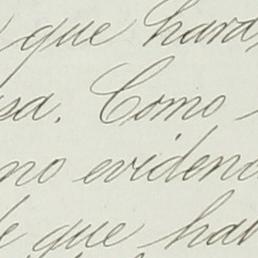 que hara
sa. Como
no evidenc
e que hab